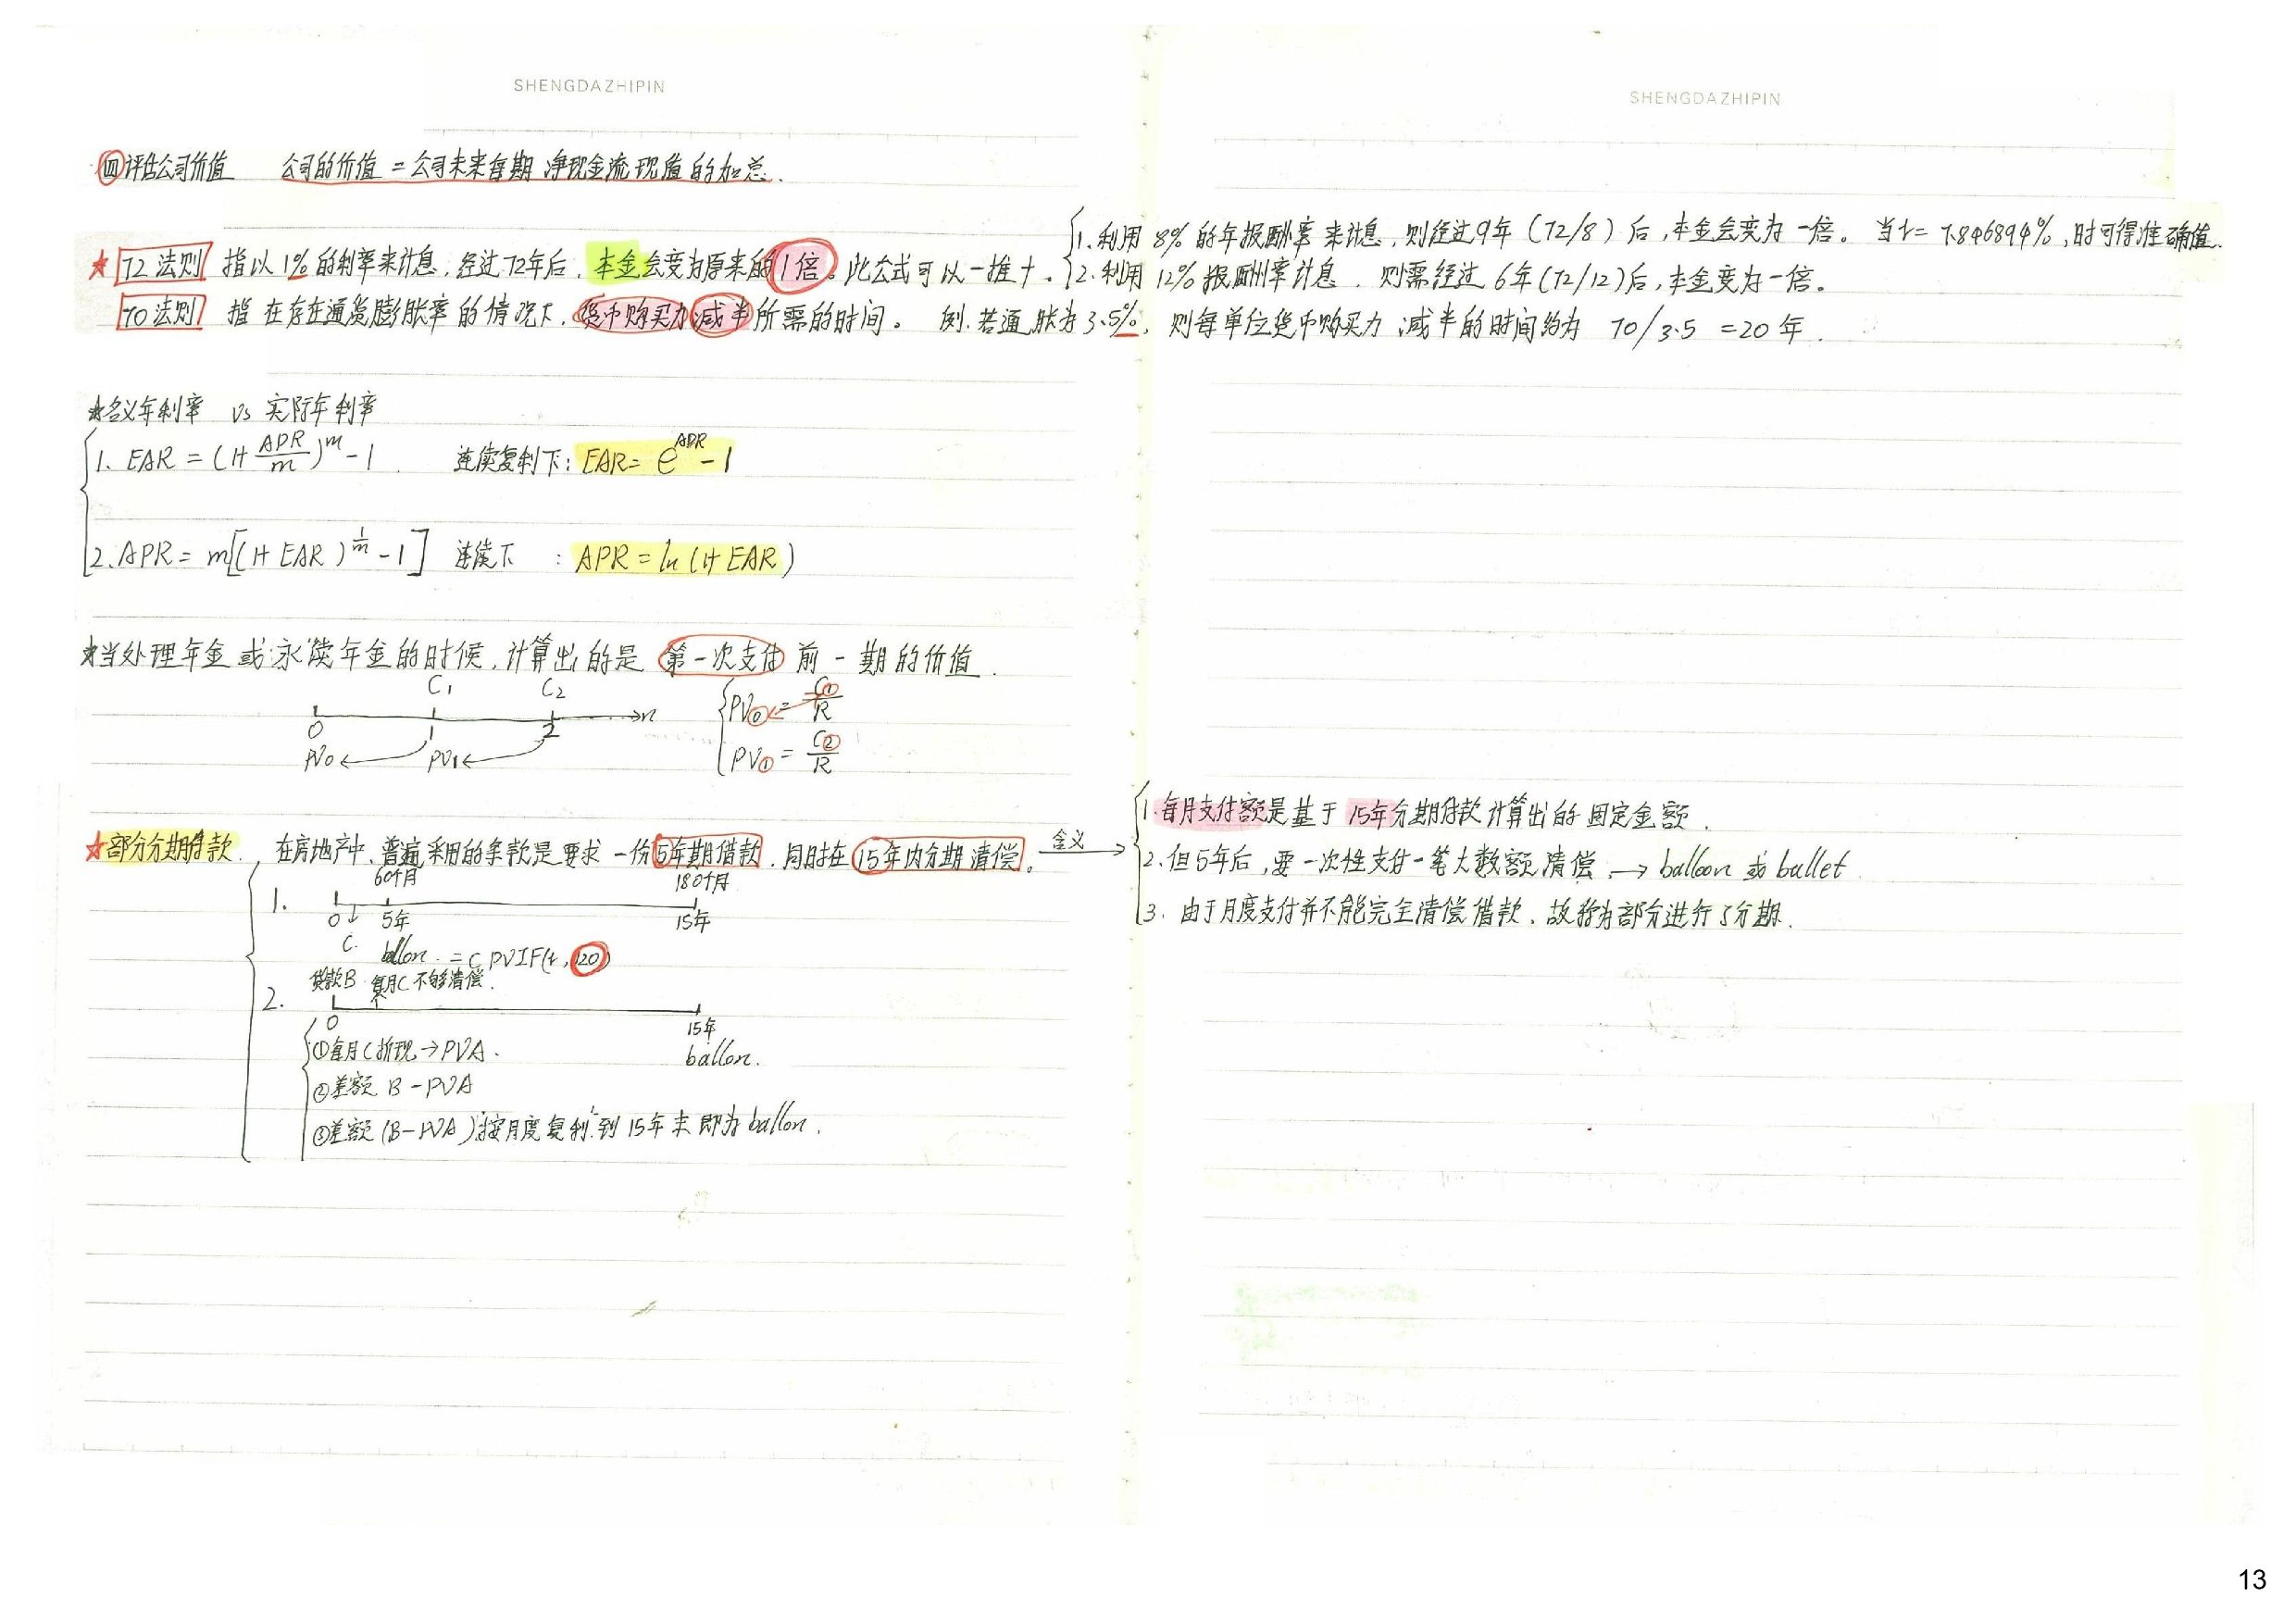 SHENGDAZHIPIN
SHENGDAZHIPIN
㊃评估公司价值 公司的价值 = 公司未来每期 净现金流现值的加总.
★ 72法则 指以1%的利率来计息,经过72年后,本金会变为原来的1倍。此公式可以一推十.
1.利用 8% 的年报酬率来计息,则经过9年 (72/8) 后,本金会变为一倍。 当r= 7.846894%,时可得准确值.
2.利用 12% 报酬率计息, 则需经过 6年(72/12)后,本金变为一倍。
70法则 指在存在通货膨胀率的情况下,货币购买力减半所需的时间。 例.若通胀为3.5%, 则每单位货币购买力减半的时间约为 70/3.5 =20 年.
★名义年利率 vs 实际年利率
1. EAR = (1+ APR/m)^m - 1 . 连续复利下: EAR= e^APR - 1
2. APR = m[(1+ EAR)^1/m - 1] 连续下 : APR = ln (1+ EAR)
★当处理年金或永续年金的时候,计算出的是 第一次支付 前一期的价值.
C1 C2
0 1 2 n
PV0 PV1
PV0 = C1/R
PV1 = C2/R
★部分分期借款. 在房地产中,普遍采用的条款是要求一份5年期借款,同时在15年内分期清偿。 含义
1.每月支付额是基于 15年分期付款计算出的固定金额.
2.但5年后,要一次性支付一笔大数额清偿 → balloon 或 bullet
3. 由于月度支付并不能完全清偿借款,故称为部分进行了分期.
1. 60个月 180个月
0 5年 15年
C. ballon = C PVIF(r, 120)
2. 贷款B 每月C不够清偿.
0 15年
ballon.
①每月C折现→PVA.
②差额 B - PVA
③差额 (B-PVA)“按月度复利”到 15年末 即为 ballon.
13